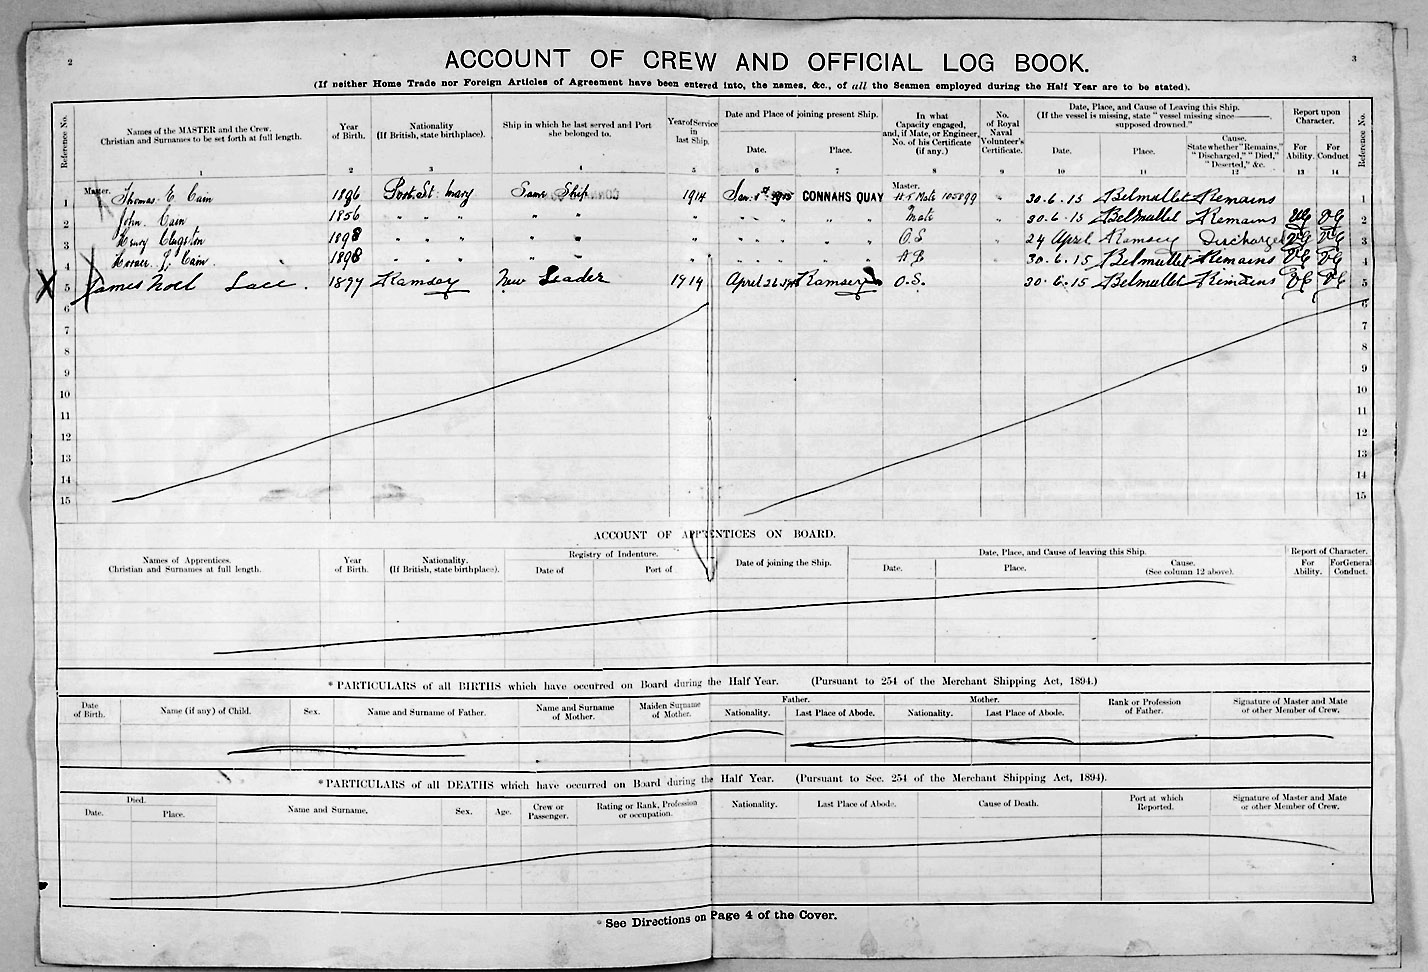 2
3
ACCOUNT OF CREW AND OFFICIAL LOG BOOK.
(If neither Home Trade nor Foreign Articles of Agreement have been entered into, the names, &c., of all the Seamen employed during the Half Year are to be stated).
Reference No. Names of the MASTER and the Crew. Christian and Surnames to be set forth at full length. Year of Birth. Nationality (If British, state birthplace). Ship in which he last served and Port she belonged to. Year of Service in last Ship. Date and Place of joining present Ship. Date. Place. In what Capacity engaged, and, if Mate, or Engineer, No. of his Certificate (if any.) No. of Royal Naval Volunteer's Certificate. Date, Place, and Cause of Leaving this Ship. (If the vessel is missing, state "vessel missing since——, supposed drowned." Date. Place. Cause. State whether "Remains," "Discharged," "Died," "Deserted," &c. Report upon Character. For Ability. For Conduct Reference No.
1 2 3 4 5 6 7 8 9 10 11 12 13 14
1 Master. Thomas E. Cain 1896 Port St. Mary Same Ship 1914 Jan. 1st 1915 CONNAHS QUAY Master. Mate 105899 " 30.6.15 Belmullet Remains 1
2 John Cain 1856 " " " " " " " " " " " " Mate " 30.6.15 Belmullet Remains VG VG 2
3 Henry Clugston 1898 " " " " " " " " " " " O.S " 24 April Ramsey Discharged VG VG 3
4 J. Cain. 1898 " " " " " " " " " " " A B 30.6.15 Belmullet Remains VG VG 4
X 5 James Noel Lace. 1897 Ramsey New Leader 1914 April Ramsey O.S. 30.6.15 Belmullet Remains VG VG 5
6 6
7 7
8 8
9 9
10 10
11 11
12 12
13 13
14 14
15 15
ACCOUNT OF APPRENTICES ON BOARD.
Names of Apprentices. Christian and Surnames at full length. Year of Birth. Nationality. (If British, state birthplace). Registry of Indenture. Date of Port of Date of joining the Ship. Date, Place, and Cause of leaving this Ship. Date. Place. Cause. (See column 12 above). Report of Character. For Ability. For General Conduct.
*PARTICULARS of all BIRTHS which have occurred on Board during the Half Year. (Pursuant to 254 of the Merchant Shipping Act, 1894.)
Date of Birth. Name (if any) of Child. Sex. Name and Surname of Father. Name and Surname of Mother. Maiden Surname of Mother. Father. Nationality. Last Place of Abode. Mother. Nationality. Last Place of Abode. Rank or Profession of Father. Signature of Master and Mate or other Member of Crew.
*PARTICULARS of all DEATHS which have occurred on Board during the Half Year. (Pursuant to Sec. 254 of the Merchant Shipping Act, 1894).
Died. Date. Place. Name and Surname. Sex. Age. Crew or Passenger. Rating or Rank, Profession or occupation. Nationality. Last Place of Abode. Cause of Death. Port at which Reported. Signature of Master and Mate or other Member of Crew.
*See Directions on Page 4 of the Cover.